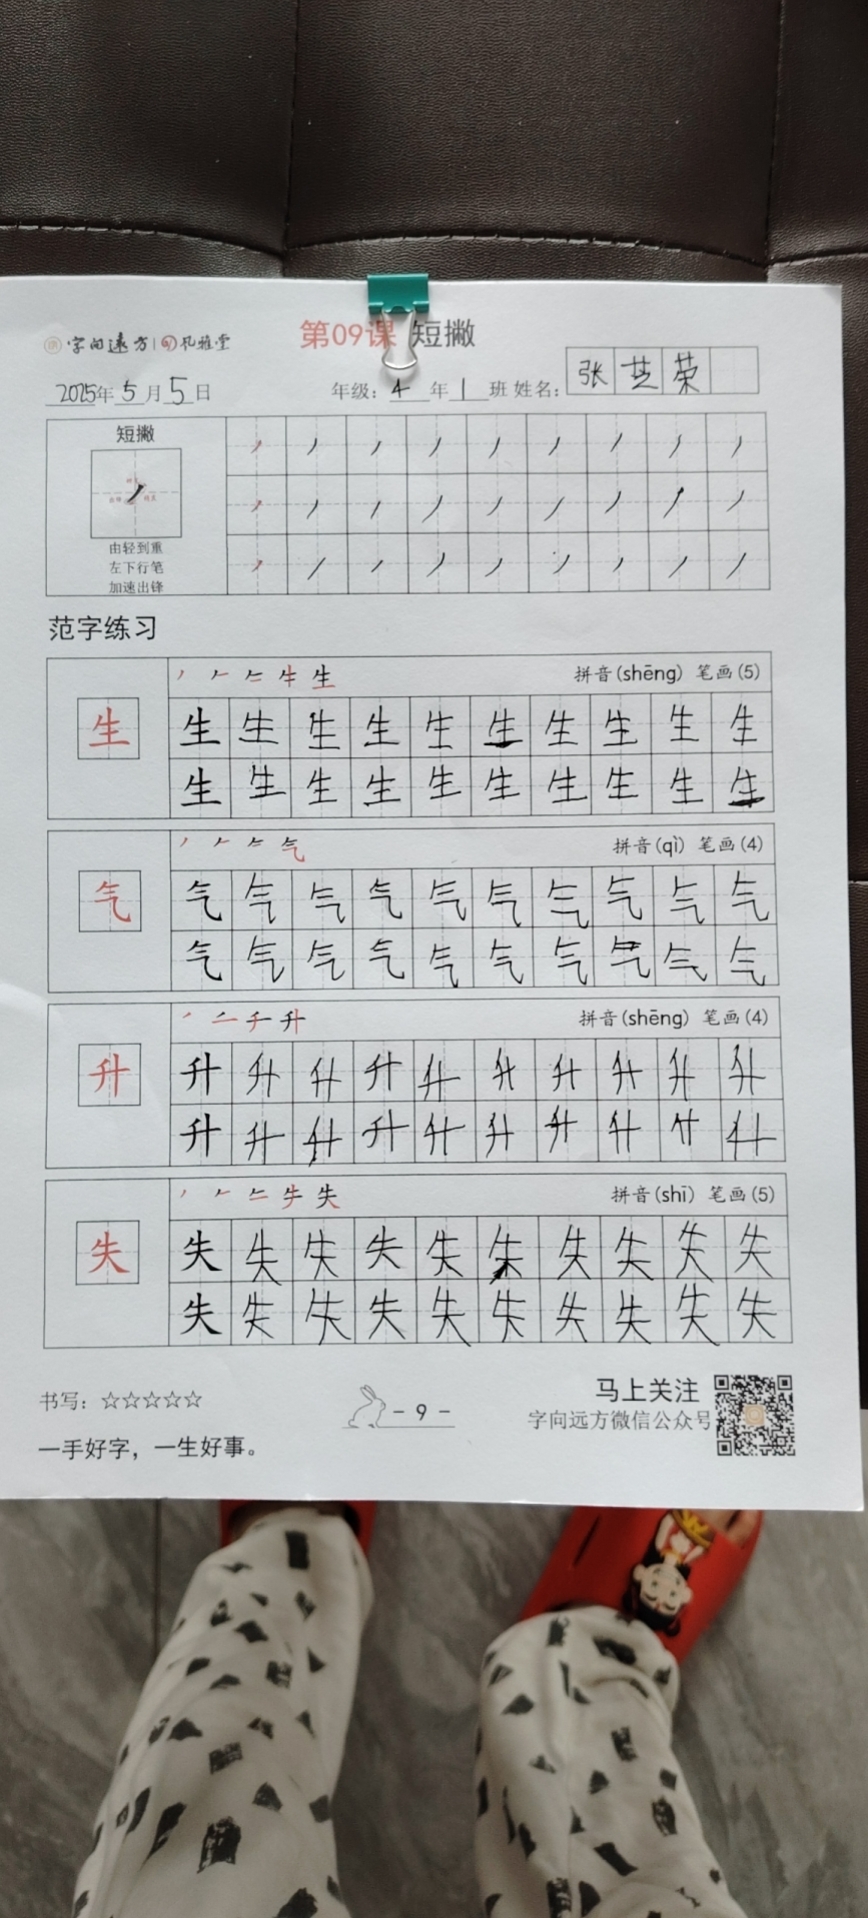 字向远方 孔雅堂
第09课 短撇
2025年5月5日 年级：4年1班 姓名：张芝荣
短撇
由轻到重
左下行笔
加速出锋
范字练习
拼音(shēng) 笔画(5)
生 生 生 生 生 生 生 生 生 生 生
生 生 生 生 生 生 生 生 生 生
拼音(qì) 笔画(4)
气 气 气 气 气 气 气 气 气 气 气
气 气 气 气 气 气 气 气 气 气
拼音(shēng) 笔画(4)
升 升 升 升 升 升 升 升 升 升 升
升 升 升 升 升 升 升 升 升 升
拼音(shī) 笔画(5)
失 失 失 失 失 失 失 失 失 失 失
失 失 失 失 失 失 失 失 失 失
书写：☆☆☆☆☆
一手好字，一生好事。
- 9 -
马上关注
字向远方微信公众号